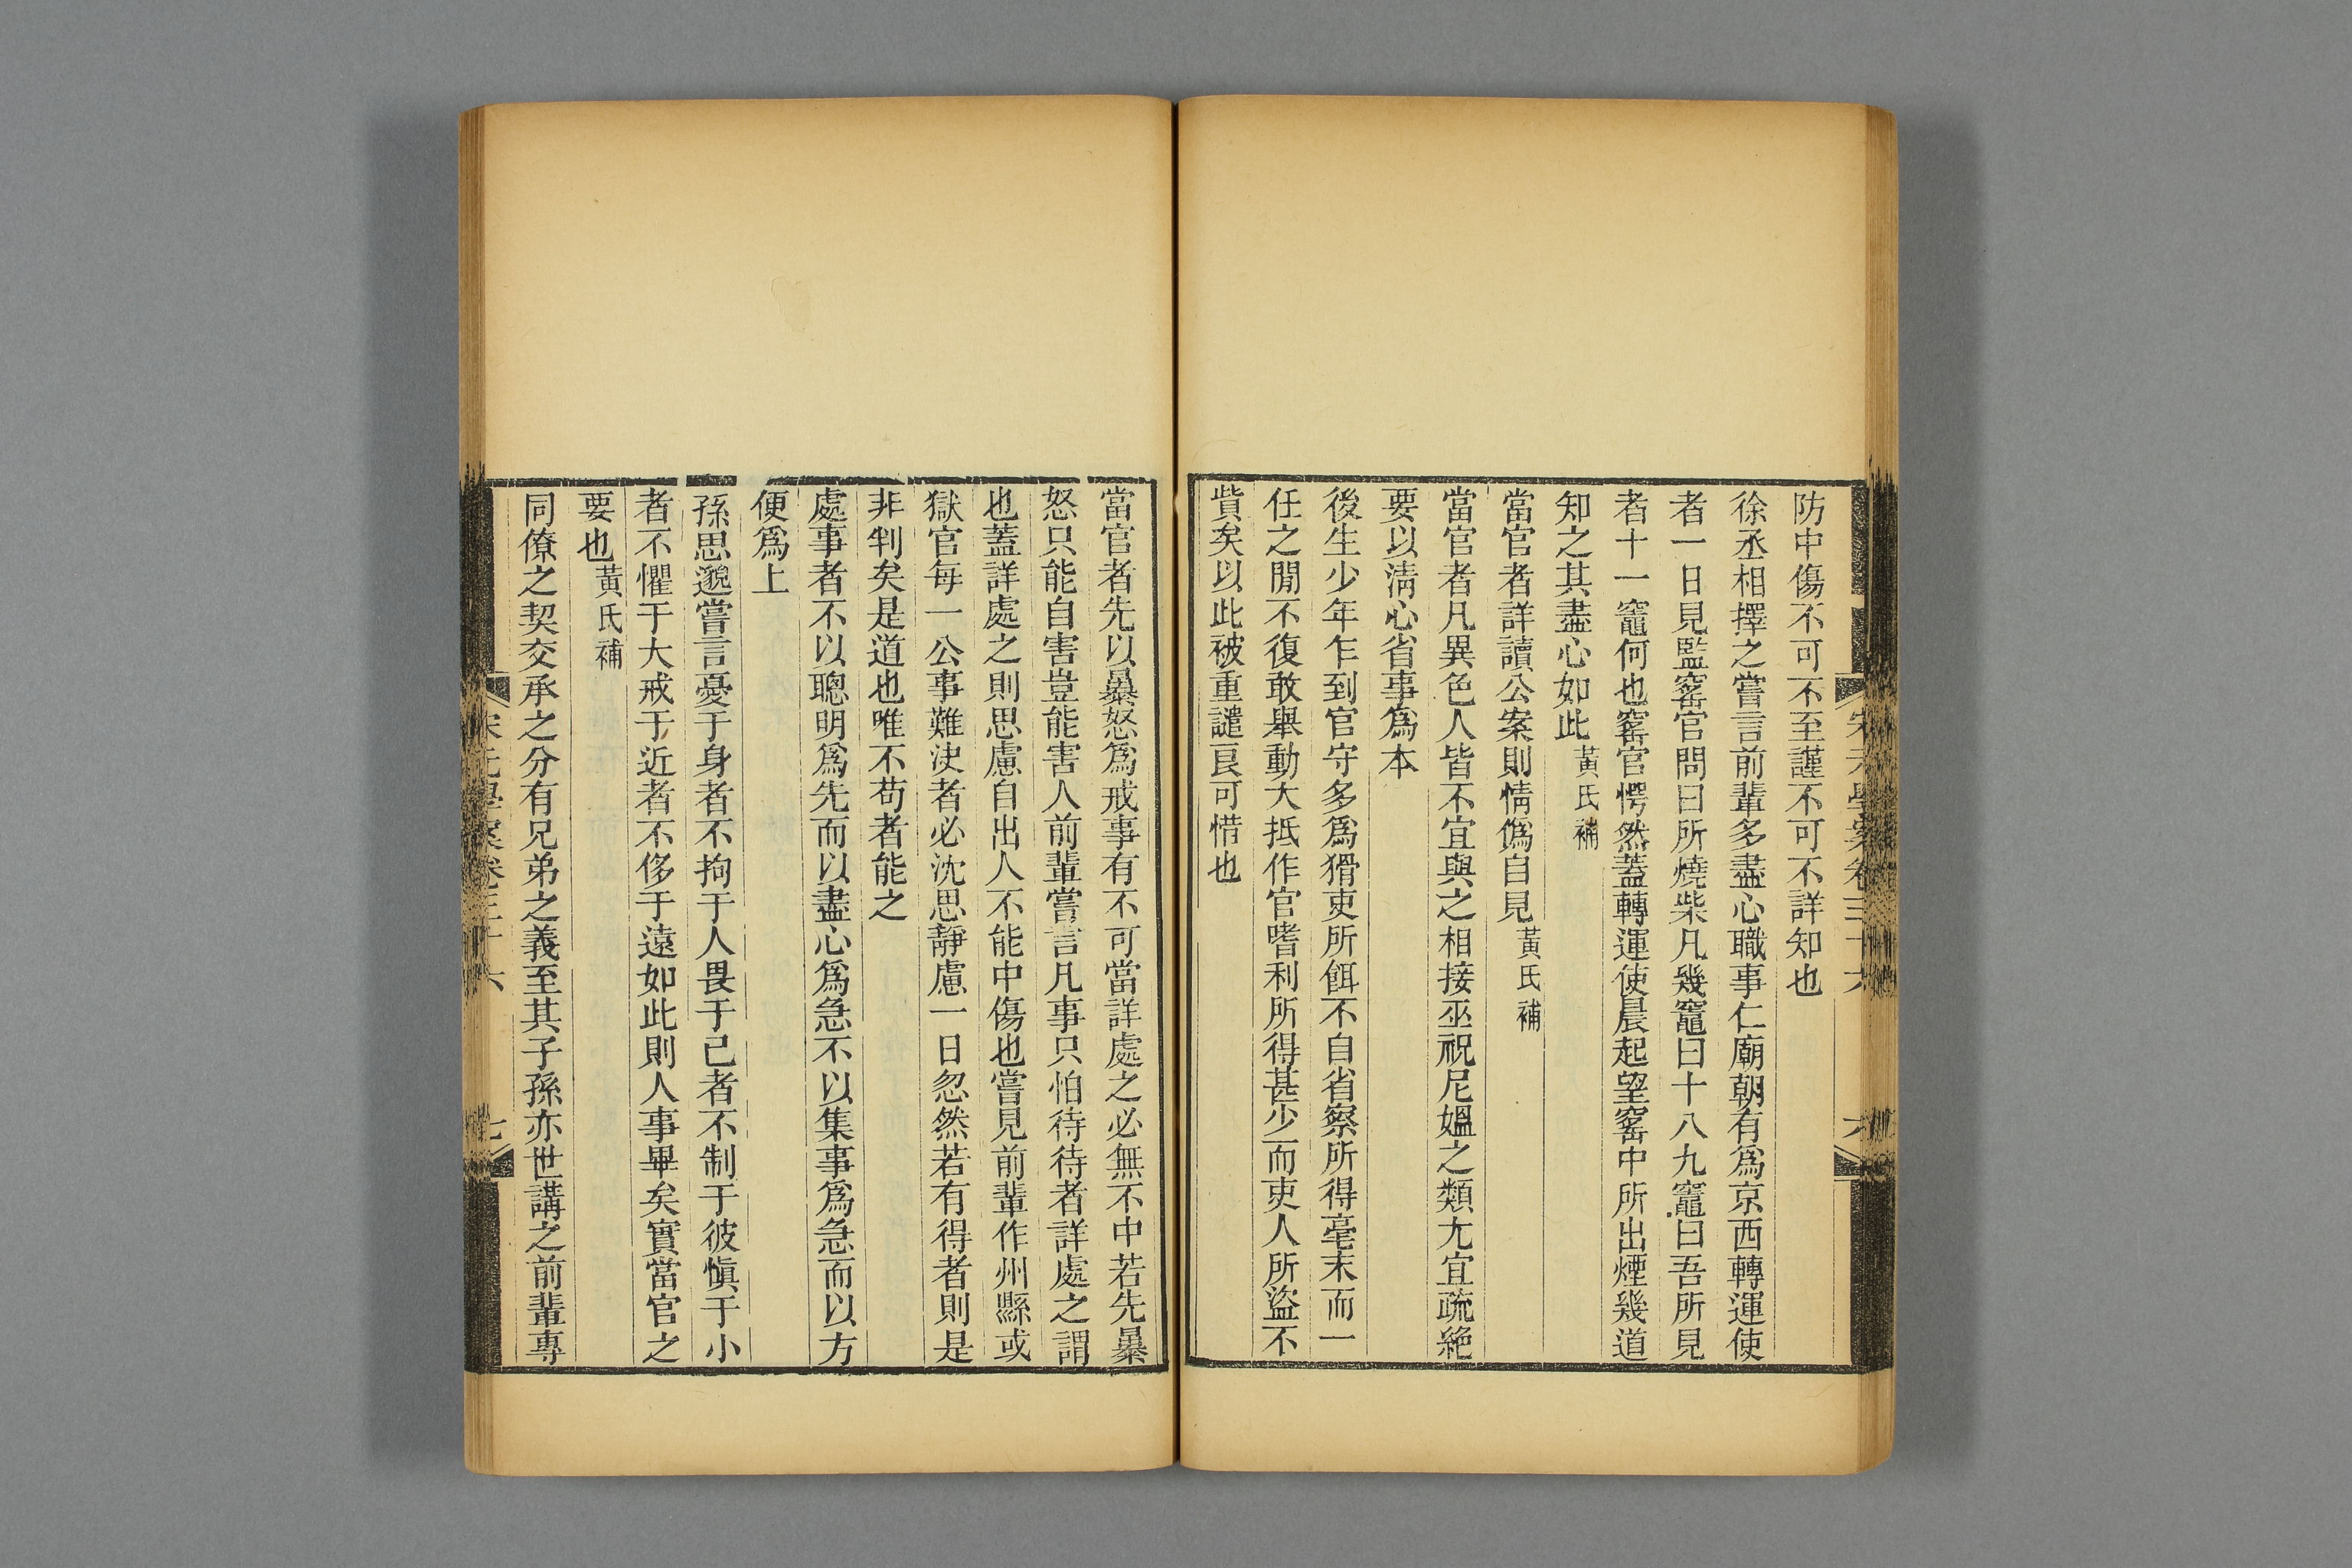 防中傷不可不至謹不可不詳知也
徐丞相擇之嘗言前輩多盡心職事仁廟朝有爲京西轉運使
者一日見監窰官問曰所燒柴凡幾竈曰十八九竈曰吾所見
者十一竈何也窰官愕然蓋轉運使晨起望窰中所出煙幾道
知之其盡心如此黃氏補
當官者詳讀公案則情僞自見黃氏補
當官者凡異色人皆不宜與之相接巫祝尼媼之類尤宜疏絶
要以淸心省事爲本
後生少年乍到官守多爲猾吏所餌不自省察所得毫末而一
任之閒不復敢舉動大抵作官嗜利所得甚少而吏人所盜不
貲矣以此被重譴良可惜也
宋元學案卷三十六
六
當官者先以暴怒爲戒事有不可當詳處之必無不中若先暴
怒只能自害豈能害人前輩嘗言凡事只怕待待者詳處之謂
也蓋詳處之則思慮自出人不能中傷也嘗見前輩作州縣或
獄官每一公事難決者必沈思靜慮一日忽然若有得者則是
非判矣是道也唯不苟者能之
處事者不以聰明爲先而以盡心爲急不以集事爲急而以方
便爲上
孫思邈嘗言憂于身者不拘于人畏于己者不制于彼愼于小
者不懼于大戒于近者不侈于遠如此則人事畢矣實當官之
要也黃氏補
同僚之契交承之分有兄弟之義至其子孫亦世講之前輩專
宋元學案卷三十六
七